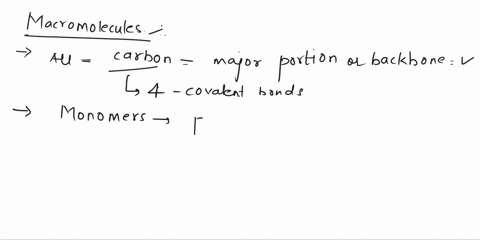 Macromolecules :-
→ All = carbon = major portion or backbone = ✓
↳ 4 - covalent bonds
→ Monomers →